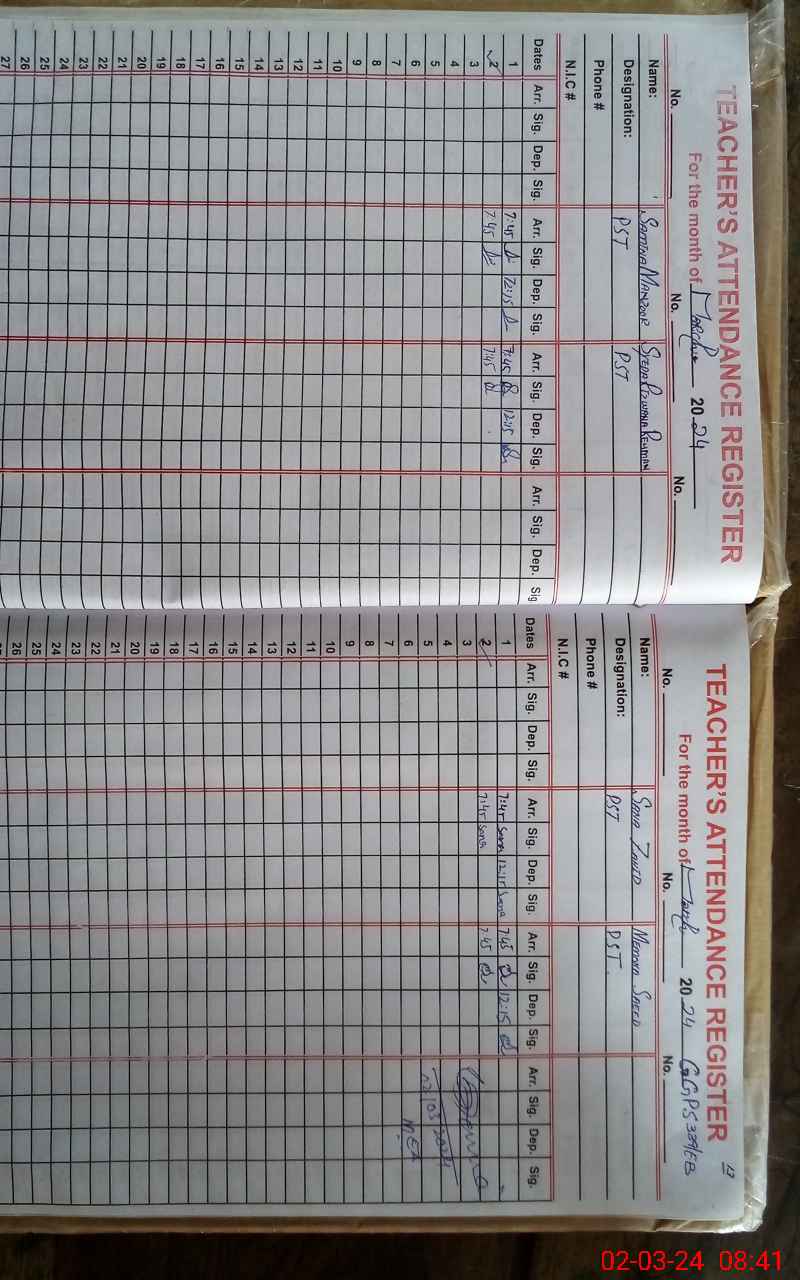 TEACHER'S ATTENDANCE REGISTER
For the month of March 2024
No. No. No.
Name: SAMINA MANZOOR SYEDA RIZWANA REHMAN
Designation: PST PST
Phone #
N.I.C #
Dates Arr. Sig. Dep. Sig. Arr. Sig. Dep. Sig. Arr. Sig. Dep. Sig. Arr. Sig. Dep. Sig
1 7:45 12:15 7:45 12:15
2 7:45 7:45
3
4
5
6
7
8
9
10
11
12
13
14
15
16
17
18
19
20
21
22
23
24
25
26
27
17
TEACHER'S ATTENDANCE REGISTER
For the month of March 2024 GGPS 339/EB
No. No. No.
Name: SANA ZAHID MEMONA SAEED
Designation: PST PST.
Phone #
N.I.C #
Dates Arr. Sig. Dep. Sig. Arr. Sig. Dep. Sig. Arr. Sig. Dep. Sig. Arr. Sig. Dep. Sig.
1 7:45 Sana 12:15 Sana 7:45 12:15
2 7:45 Sana 7:45
3
4
5 02/03/2024
6 MEA
7
8
9
10
11
12
13
14
15
16
17
18
19
20
21
22
23
24
25
26
02-03-24 08:41